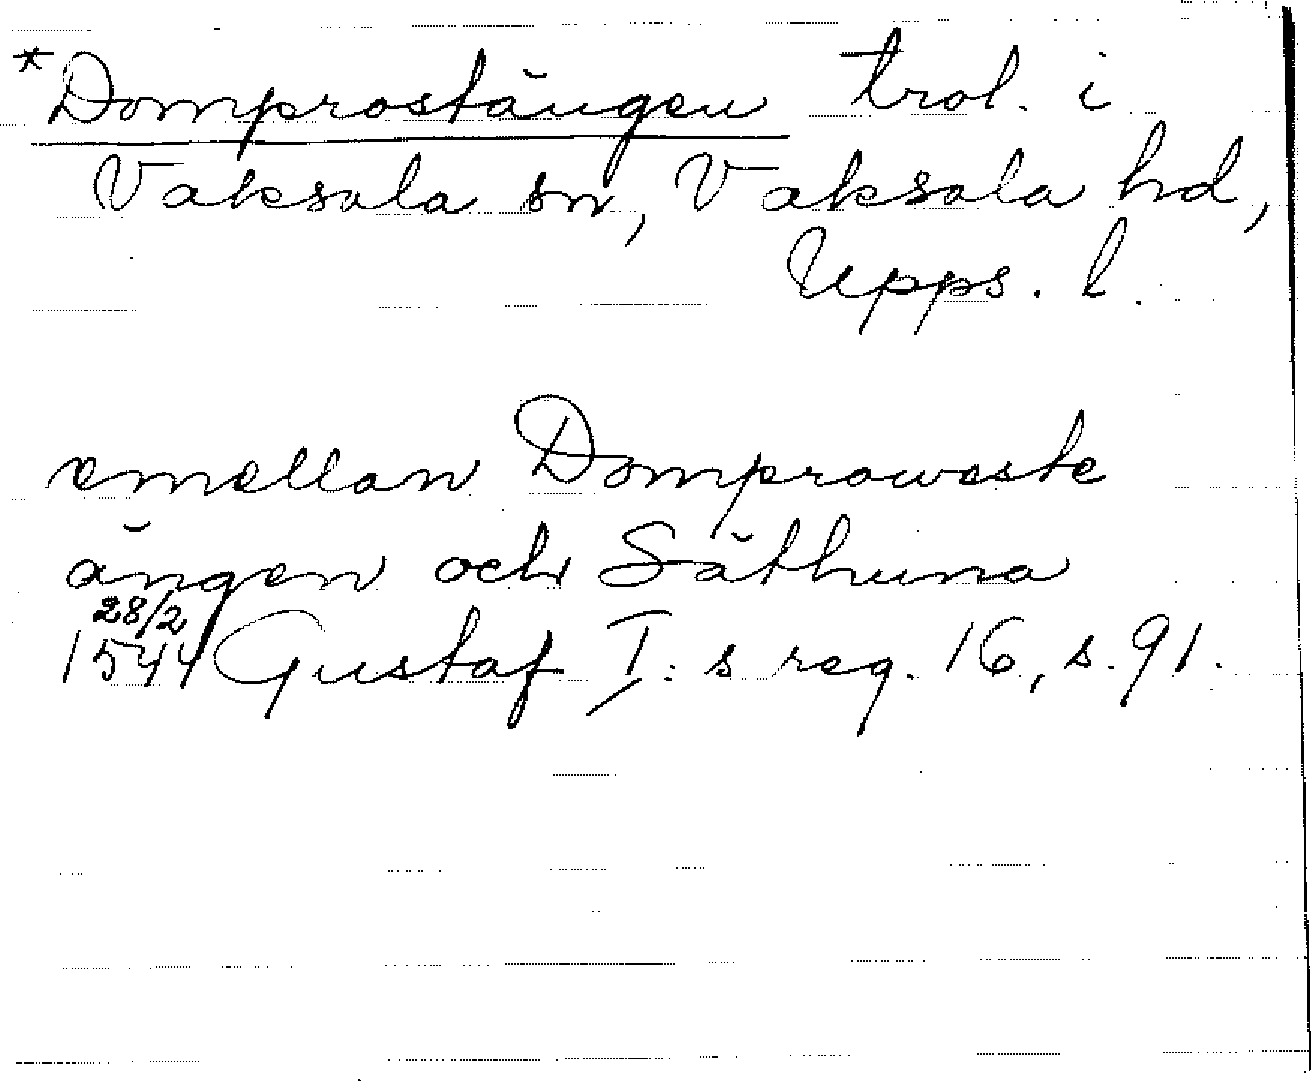 *Domprostängen trol. i
Vaksala sn, Vaksala hd,
Upps. l.
emellan Domprowaste
ängen och Säthuna
28/2
1544 Gustaf I:s reg. 16, s. 91.